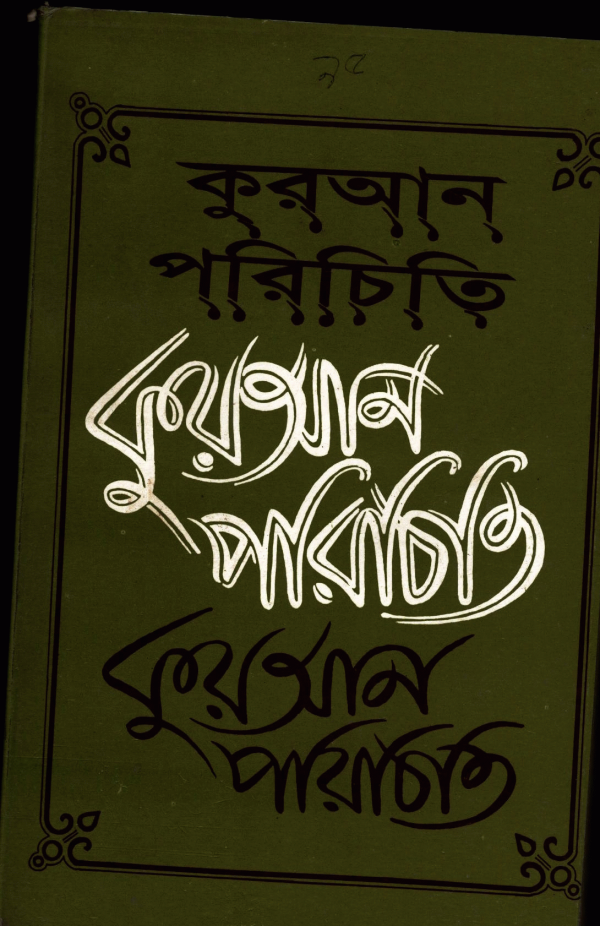 কুরআন
পরিচিতি
কুরআন
পরিচিতি
কুরআন
পরিচিতি